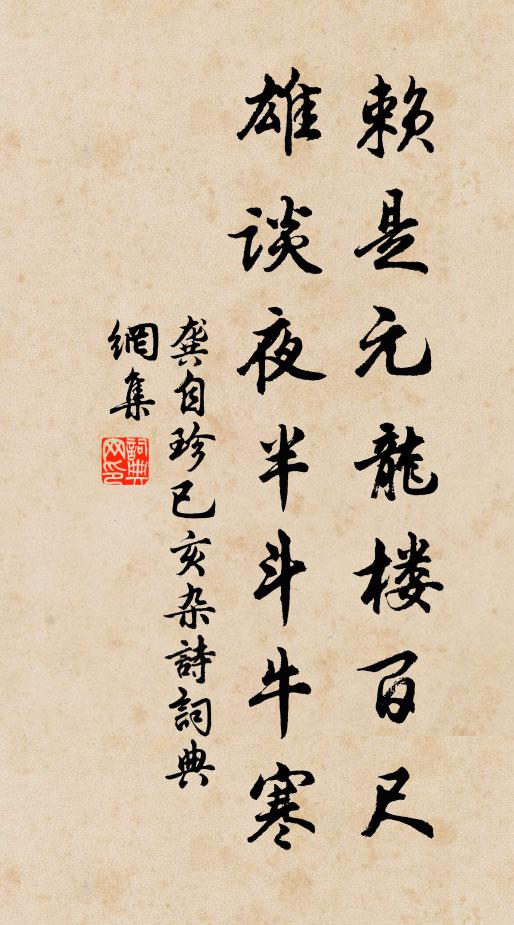 赖是元龍楼百尺
雄谈夜半斗牛寒
龚自珍己亥杂詩詞典
網集
詞典
网印